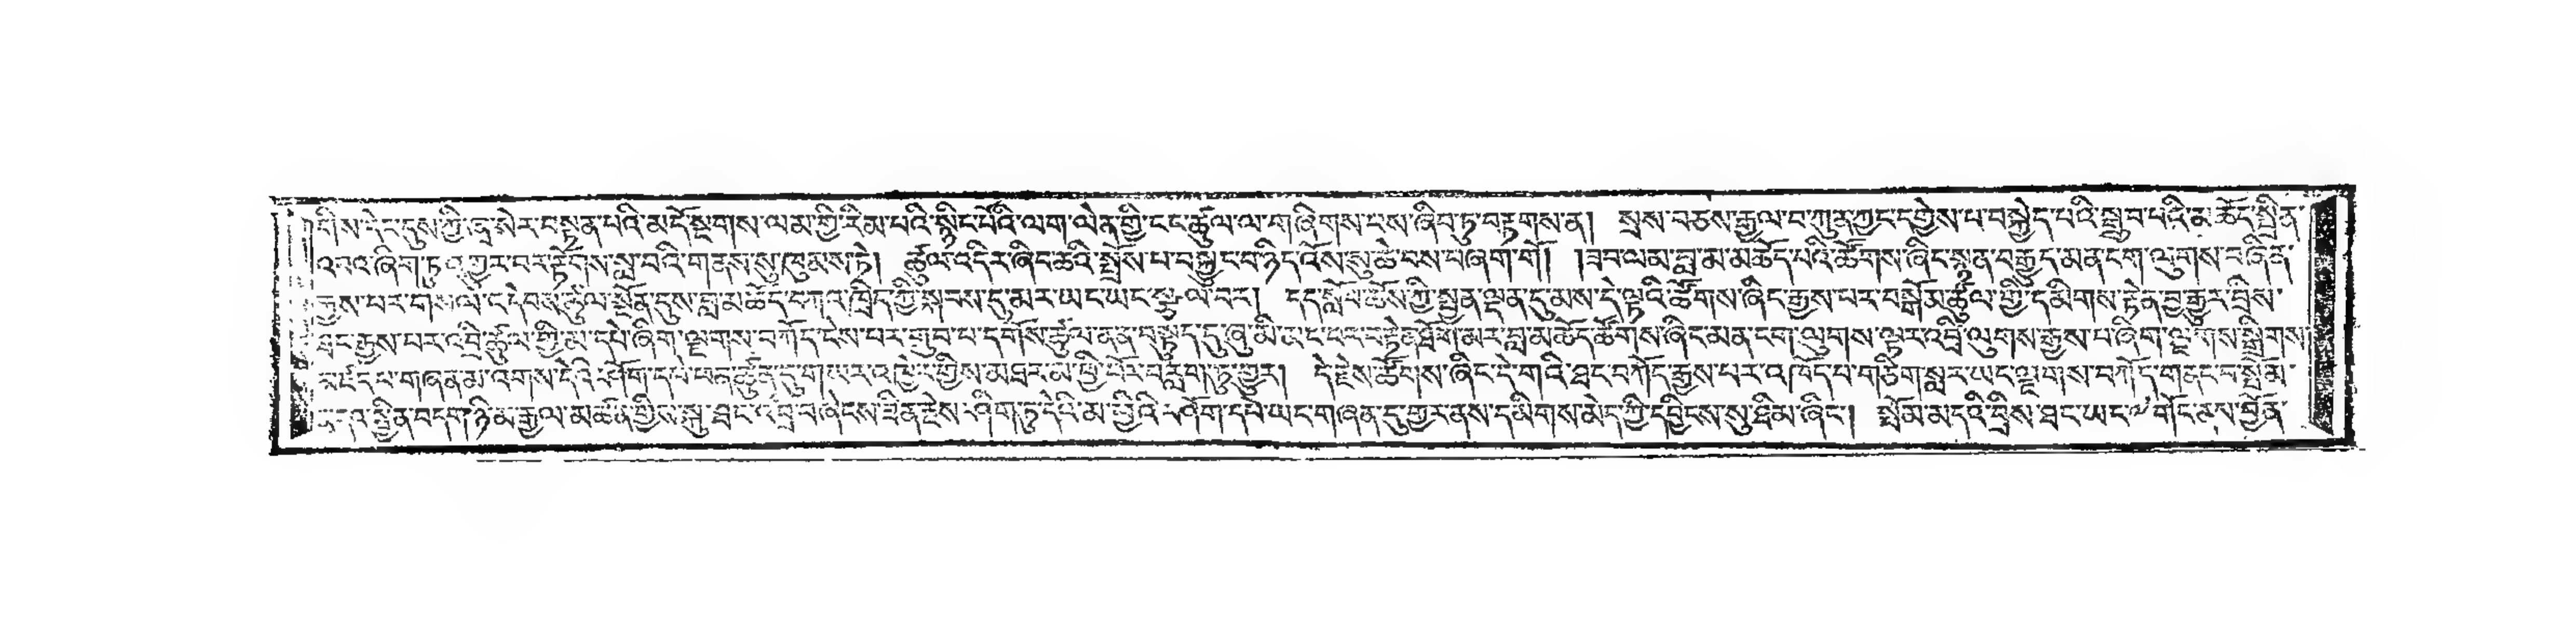 གིས་དེང་དུས་ཀྱི་ཞྭ་སེར་བསྟན་པའི་མདོ་སྔགས་ལམ་གྱི་རིམ་པའི་སྙིང་པོའི་ལག་ལེན་གྱི་ངང་ཚུལ་ལ་གཞིགས་ངས་ཞིབ་ཏུ་བརྟགས་ན། སྲས་བཅས་རྒྱལ་བ་ཀུན་ཀྱང་དགྱེས་པ་བསྐྱེད་པའི་སྒྲུབ་པའི་མཆོད་སྤྲིན་
འབའ་ཞིག་ཏུ་འགྱུར་བར་རྟོགས་སླ་བའི་གནས་སུ་ཁུམས་ཏེ། ཚུལ་འདིར་ཞིང་ཆའི་སྤྲོས་པ་བསྐྱུང་བ་ཉིད་འོས་སུ་ཆེ་བས་བཞག་གོ། །ཟབ་ལམ་བླ་མ་མཆོད་པའི་ཚོགས་ཞིང་སྙན་བརྒྱུད་མན་ངག་ལུགས་བཞིན་
རྒྱས་པར་གསལ་ དེབས་ཚུལ་སྔོན་དུས་བླ་མཆོད་བཀའ་ཁྲིད་ཀྱི་སྐབས་དུ་མར་ཡང་ཡང་ དད་སློབ་ཆོས་ཀྱི་སྤྱན་ལྡན་དུམས་དེ་ལྟའི་ཚོགས་ཞིང་རྒྱས་པར་བསྒོམ་ཚུལ་གྱི་དམིགས་རྟེན་ཟུར་རྒྱུར་བྲིས་
ཐང་རྒྱས་པར་འབྲི་ཚུལ་གྱི་མ་དཔེ་ཞིག་ལྷགས་བཀོད་ངེས་པར་གྲུབ་པ་དགོས་ཚུལ་ནན་བསྟུད་དུ་ཞུ་མི་ བླ་མཆོད་ཚོགས་ཞིང་མན་ངག་ལུགས་ལྟར་འབྲི་ལུགས་རྒྱས་པ་ཞིག་ལྷགས་སྒྲིགས།
མཛད་པ་གཞན་མ་འགས་དེའི་ཤོག་དཔེ་ ཚུན་དུ་གཡར་འཁྱེར་གྱིས་མཐར་མ་ཕྱི་པོར་བརླག་ཏུ་གྱུར། དེ་རྗེས་ཚོགས་ཞིང་དེ་གའི་ཐང་བཀོད་རྒྱས་པར་འཁོད་པ་གཅིག་སླར་ཡང་ལྷགས་བཀོད་གནང་བ་སྤྲོམ་
དའ་སྦྱིན་བདག་ཉི་མ་རྒྱལ་མཚན་གྱིས་སྐུ་ཐང་འབྲི་བཞེངས་ཟིན་རྗེས་ཤིག་ཏུ་དེའི་མ་ཕྱིའི་ཤོག་དཔེ་ཡང་གཞན་དུ་གྱར་ནས་དམིགས་མེད་ཀྱི་དབྱིངས་སུ་ཐིམ་ཞིང་། སྤྲོམ་མདའི་བྲིས་ཐང་ཡང་ གོང་ནས་བྱོན་